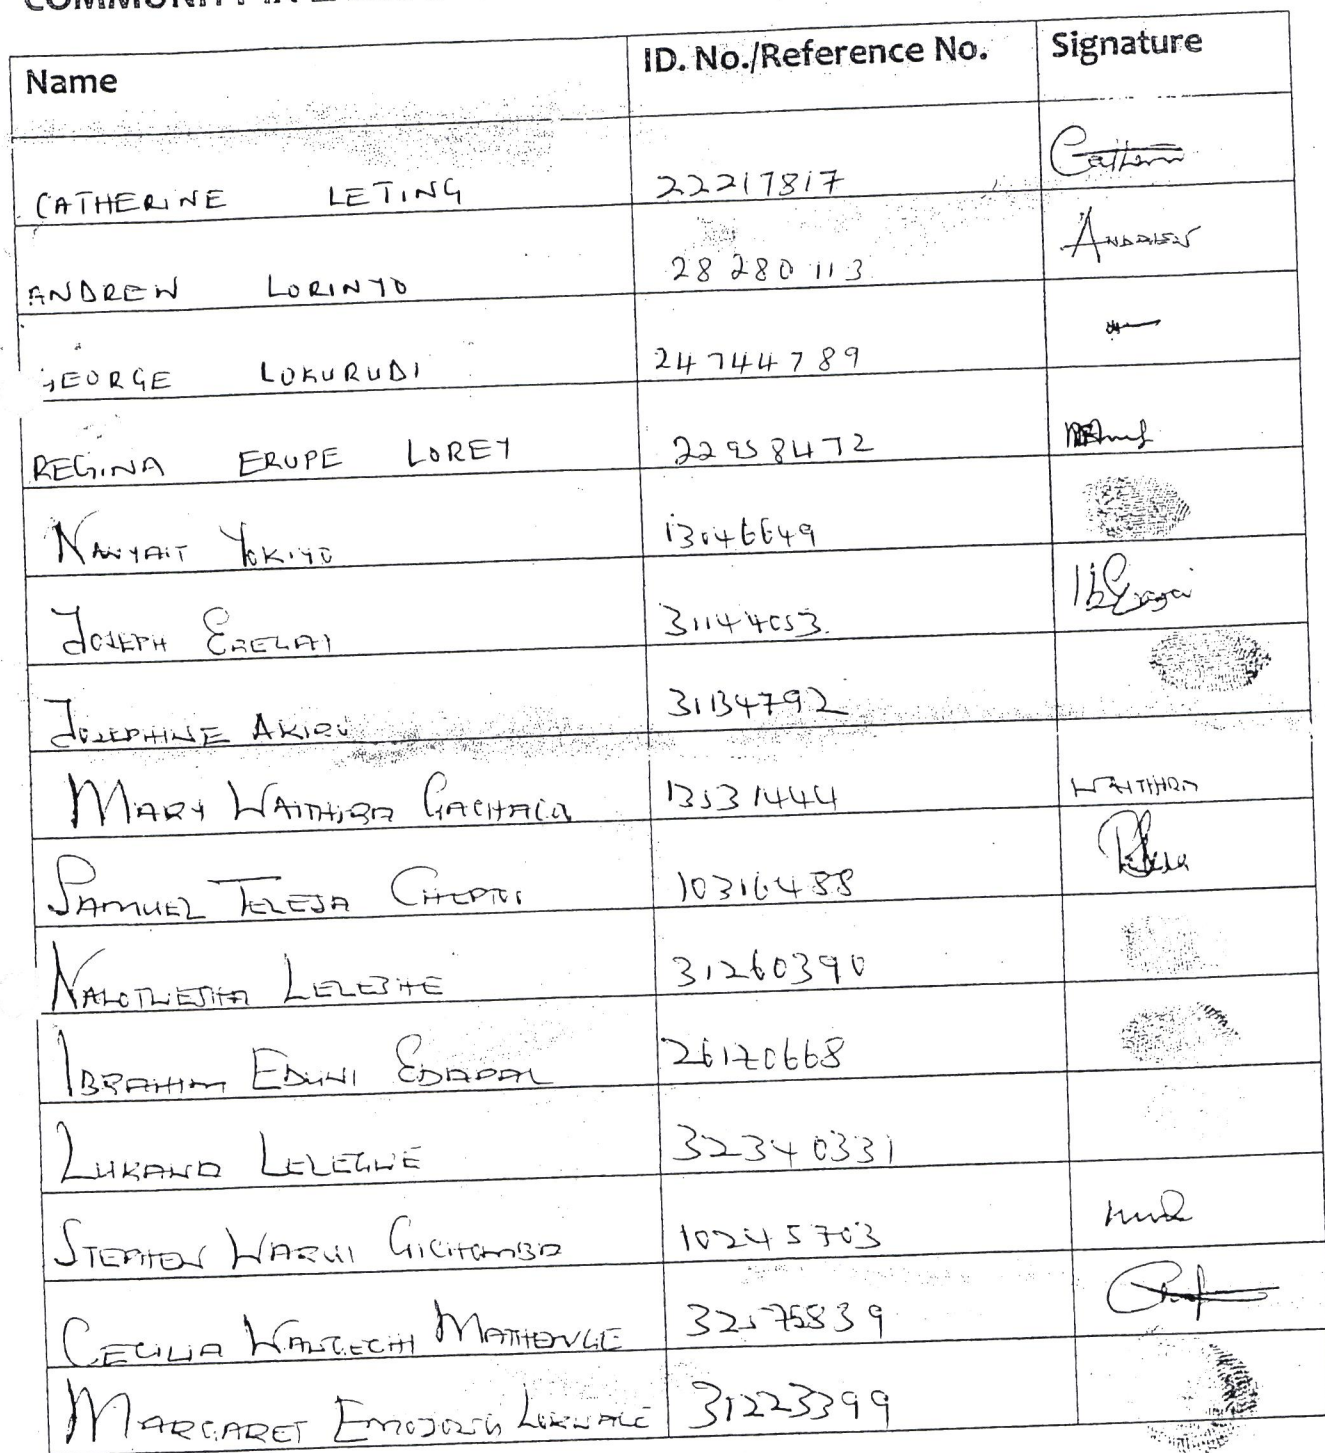 Name ID. No./Reference No. Signature
CATHERINE LETING 22217817 Cathern
ANDREW LORINYO 28280113 ANDREW
GEORGE LOKURUDI 24744789
REGINA ERUPE LOREY 22958472
NANYAIT YOKIYO 13046649
JOSEPH EREGAI 31144053.
JOSEPHINE AKIRU 31134792
MARY WAITHIRA GACHAGA 13531444 WAITHIRA
SAMUEL TELEJA CHEPTOI 10316488
LELESHE 31260390
IBRAHIM EDUNI EDAPAL 26120668
LUKANO LELEGWE 32340331
STEPHEN WARUI GICHOMBA 10245703
CECILIA WANGECHI MATHENGE 32575839
MARGARET 31223399